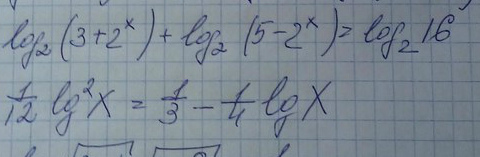 log₂(3+2ˣ)+log₂(5-2ˣ)=log₂16
1/12 lg²x = 1/3 - 1/4 lgx